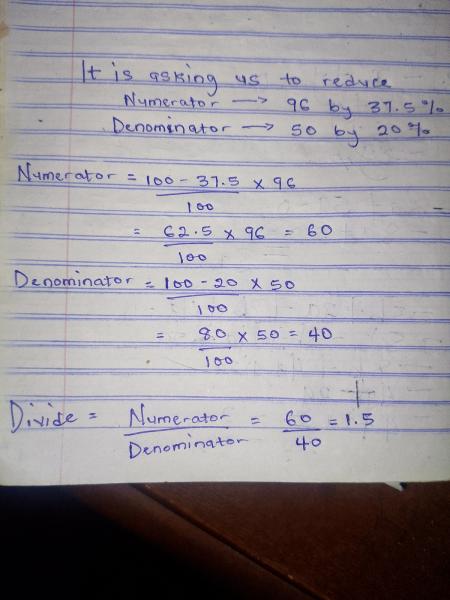 It is asking us to reduce
Numerator → 96 by 37.5%
Denominator → 50 by 20%
Numerator = 100 - 37.5 × 96
100
= 62.5 × 96 = 60
100
Denominator = 100 - 20 × 50
100
= 80 × 50 = 40
100
Divide = Numerator = 60 = 1.5
Denominator 40